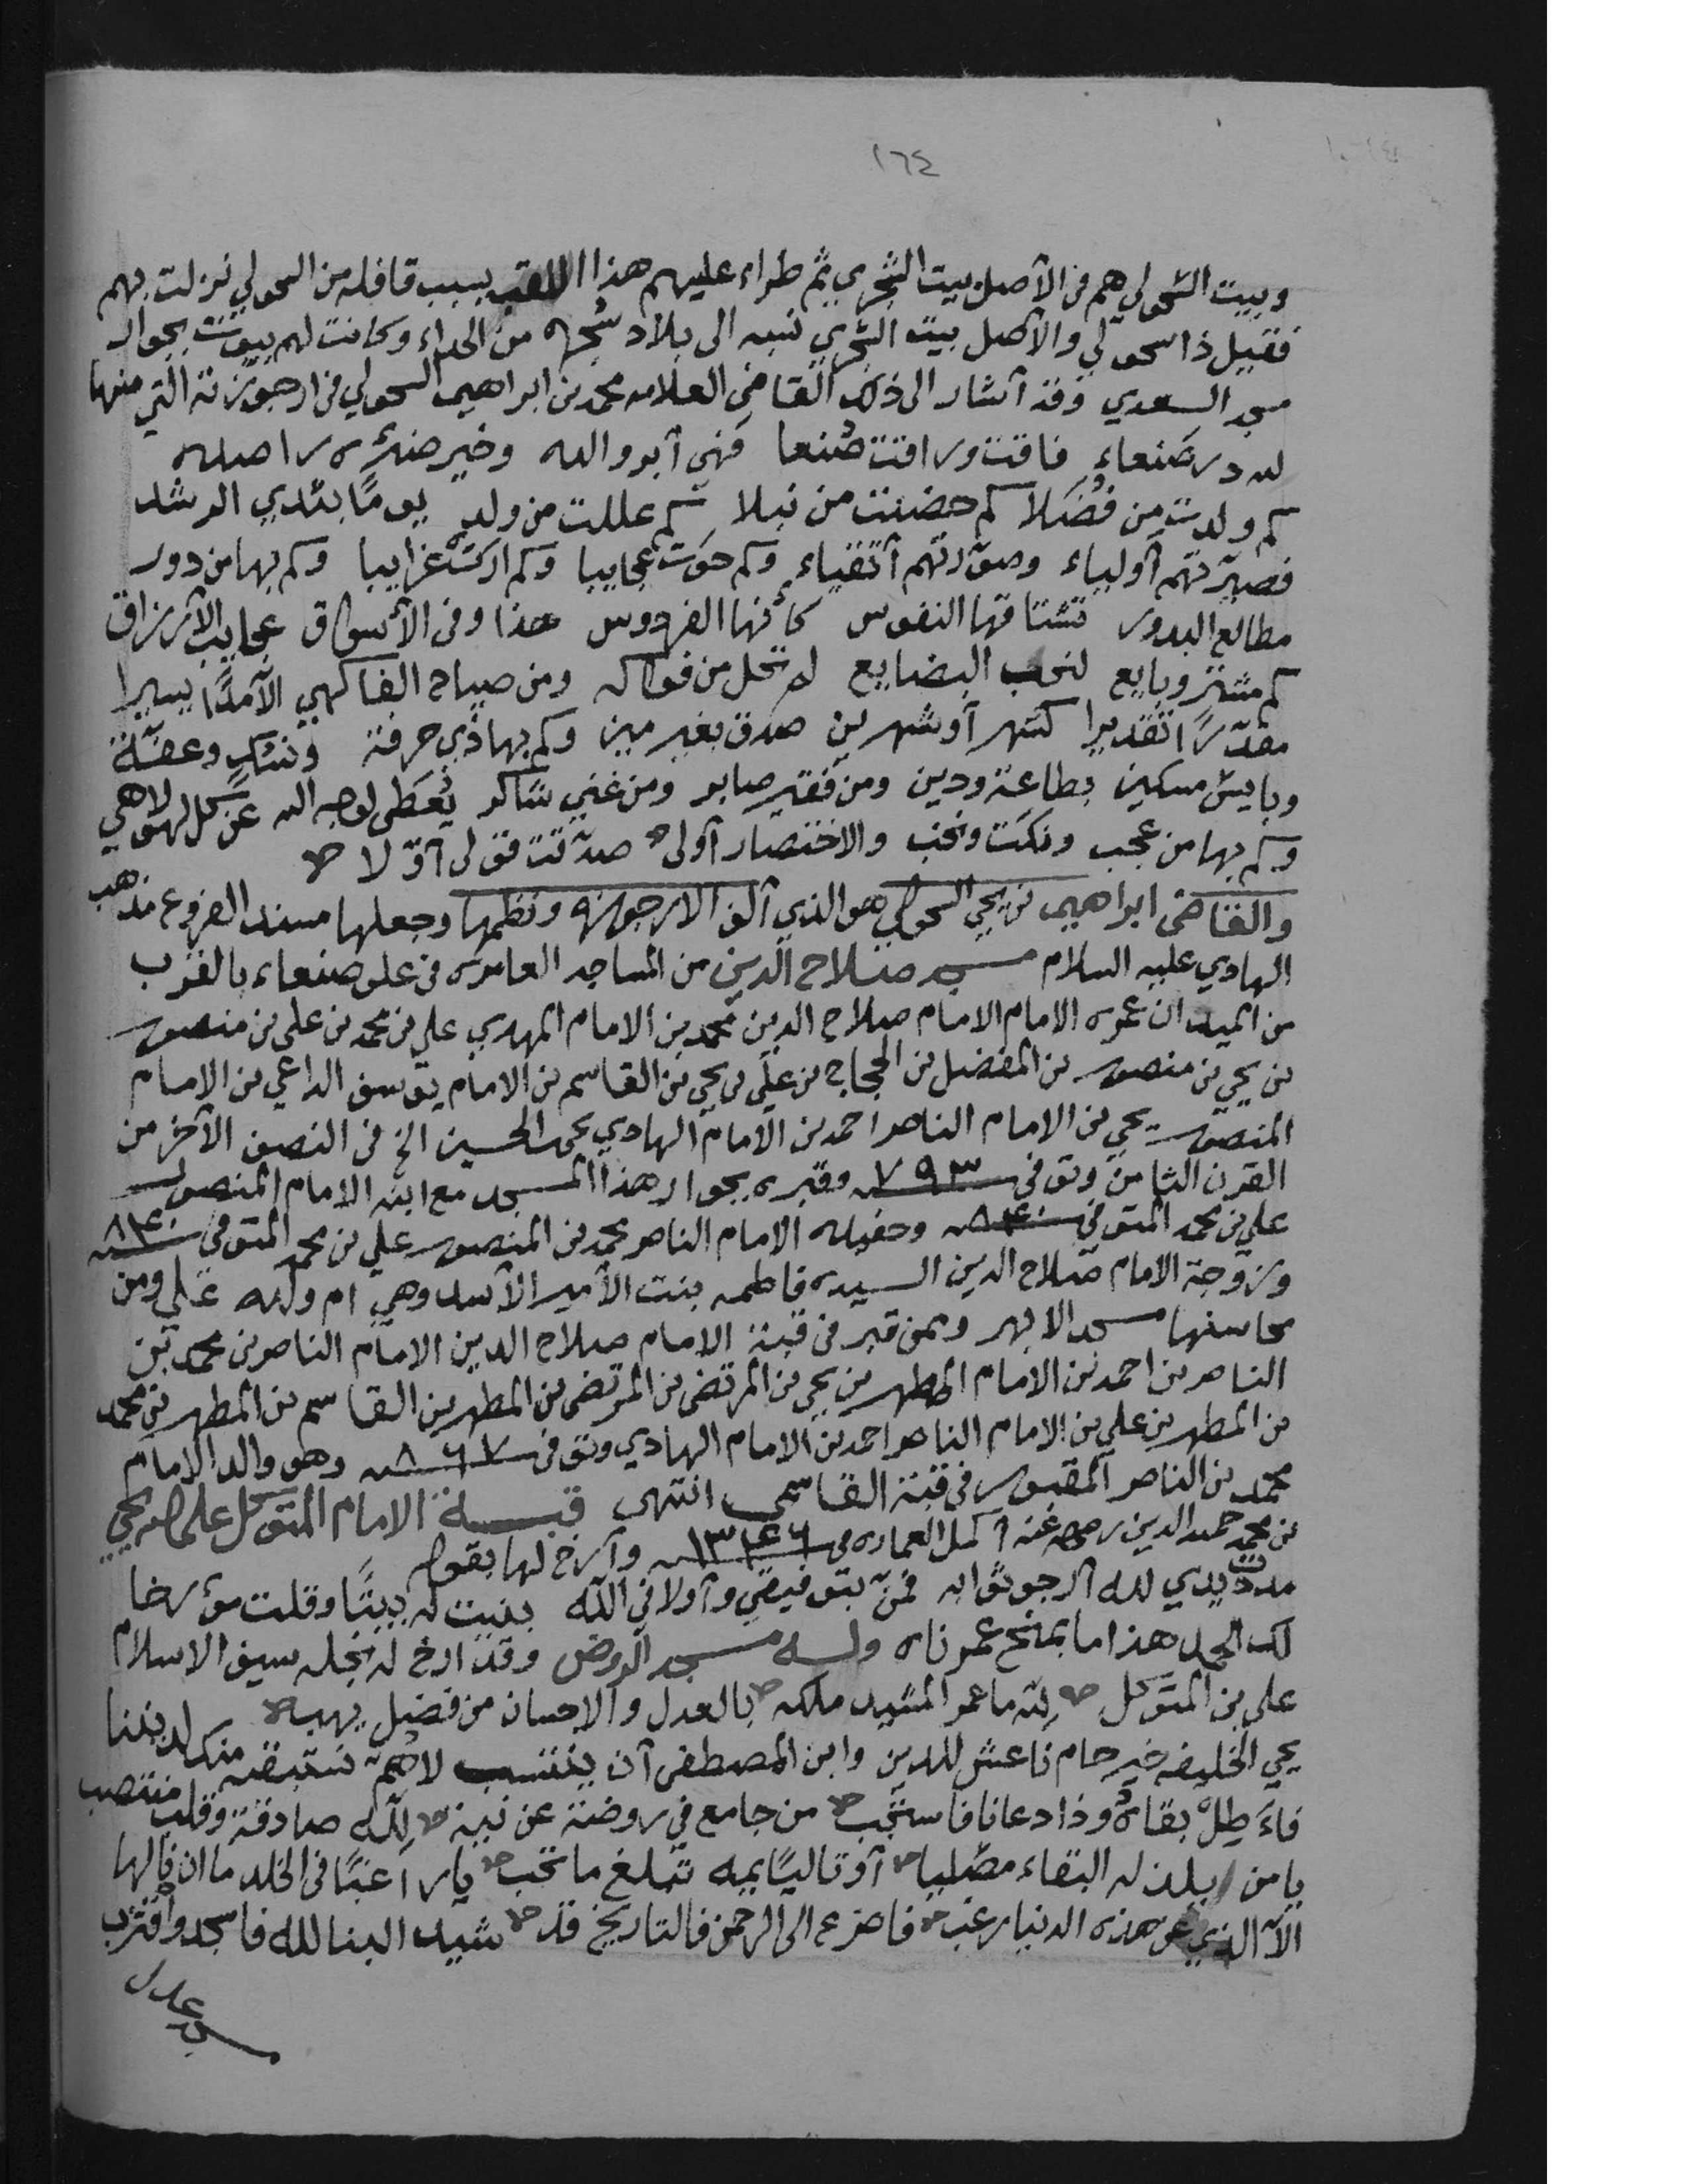 ١٦٤
وبيت السحولي هم في الأصل بيت الشجري ثم طراء عليهم هذا اللقب بسبب قافله من السحولي نزلت بهم
فقيل ذا سحولي والأصل بيت الشجري نسبه الى بلاد شجره من الحداء وكانت لهم بيوت بجوار
مسجد السعدي وقد أشار الى ذلك القاضي العلامه محمد بن ابراهيم السحولي في ارجوزته التي منها
لله در صنعاء فاقت وراقت صنعا فهي أبر والده وخير ضئره راصده
كم ولدت من فضلا كم حضنت من نبلا كم عللت من ولد يومًا بثدي الرشد
فصيرتهم أولياء وصورتهم أتقياء وكم حوت عجايبا وكم اركت غرايبا وكم بها من دور
مطالع البدور تشتاقها النفوس كأنها الفردوس هذا وفي الأسواق عجايب الأرزاق
كم مشتر وبايع لنخب البضايع لم تخل من فواكه ومن صباح الفاكهي الا أمدًا يسيرا
مقدرًا تقديرا كشهر أو شهرين صدق بغير مين وكم بها ذي حرفة ونسك وعفة
وبايس مسكين بطاعة ودين ومن فقير صابر ومن غني شاكر يعطي لوجه الله عن كل لهو لاهي
وكم بها من عجب ونكت ونخب والاختصار أولى صدقت قولي أولا
والقاضي ابراهيم بن يحي السحولي هو الذي ألف الارجوزه ونظمها وجعلها مسند الفروع مذهب
الهادي عليه السلام مسجد صلاح الدين من المساجد العامره في علو صنعاء بالقرب
من الميدان عمره الامام الامام صلاح الدين محمد بن الامام المهدي علي بن محمد بن علي بن منصور
بن يحي بن منصور بن المفضل بن الحجاج بن علي بن يحي بن القاسم بن الامام يوسف الداعي بن الامام
المنصور يحي بن الامام الناصر احمد بن الامام الهادي يحي الحسين الخ في النصف الآخر من
القرن الثامن وتوفي سنه ٧٩٣ وقبره بجوار هذا المسجد مع ابنه الامام المنصور
علي بن محمد المتوفي سنه ٨٤٠ وحفيده الامام الناصر محمد بن المنصور علي بن محمد المتوفي سنه ٨٤٠
وزوجة الامام صلاح الدين السيده فاطمه بنت الأمير الأسد وهي ام ولده علي ومن
محاسنها مسجد الابهر وممن قبر في قبة الامام صلاح الدين الامام الناصر بن محمد بن
الناصر بن احمد بن الامام المطهر بن يحي بن المرتضى بن المرتضى بن المطهر بن القاسم بن المطهر بن محمد
بن المطهر بن علي بن الامام الناصر احمد بن الامام الهادي وتوفي سنه ٨٦٧ وهو والد الامام
محمد بن الناصر المقبور في قبة القاسمي انتهى قبة الامام المتوكل على الله يحي
بن محمد حميد الدين رضي الله عنه أكمل العماره في سنه ١٣٤٦ وأرخ لها بقوله
مددت يدي لله أرجو ثوابه فمن بتوفيقي وأولاني الله بنيت له بيتًا وقلت مؤرخا
لك الحمد هذا ما بمنح عمرناه وله مسجد الروض وقد ارخ له نجله سيف الاسلام
علي بن المتوكل لله ما عمر المشيد ملكه بالعدل والاحسان من فضل يهب
يحي الخليفه خير حام ناعش للدين وابن المصطفى أن ينتسب لاهم نستبقيه منك لديننا
فأطل بقاه وذا دعانا فاستجب من جامع في روضة عن نية لله صادقة وقلب منتصب
يا من يلذ له البقاء مصليا أو تاليًا يمه تبلغ ما تحب يا راغبًا في الخلد ما ان نالها
الا الذي عن هذه الدنيا رغب فاضرع الى الرحمن فالتاريخ قد شيد البنا لله فاسجد واقترب